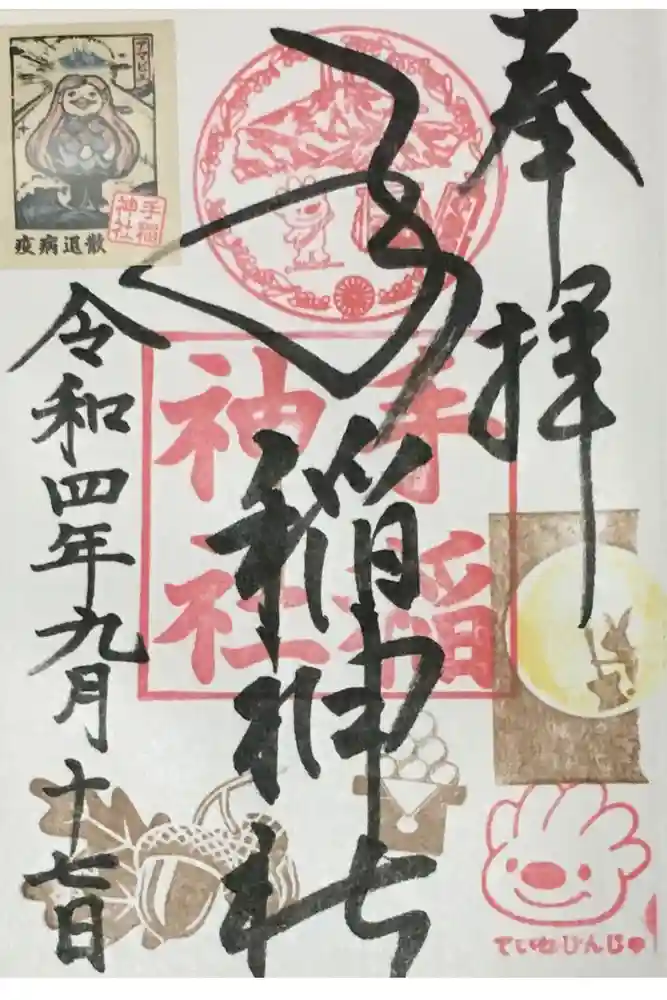 奉拝
手稲神社
手稲
神社
ていねじんじゃ
アマビエ
手稲
神社
疫病退散
令和四年九月十七日